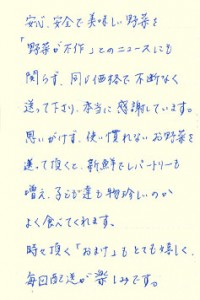 安心、安全で美味しい野菜を
「野菜が不作」とのニュースにも
関らず、同じ価格で不断なく
送って下さり、本当に感謝しています。
思いがけず、使い慣れないお野菜を
送って頂くと、新鮮でレパートリーも
増え、子ども達も物珍しいのか
よく食べてくれます。
時々頂く「おまけ」もとても嬉しく、
毎回配送が楽しみです。